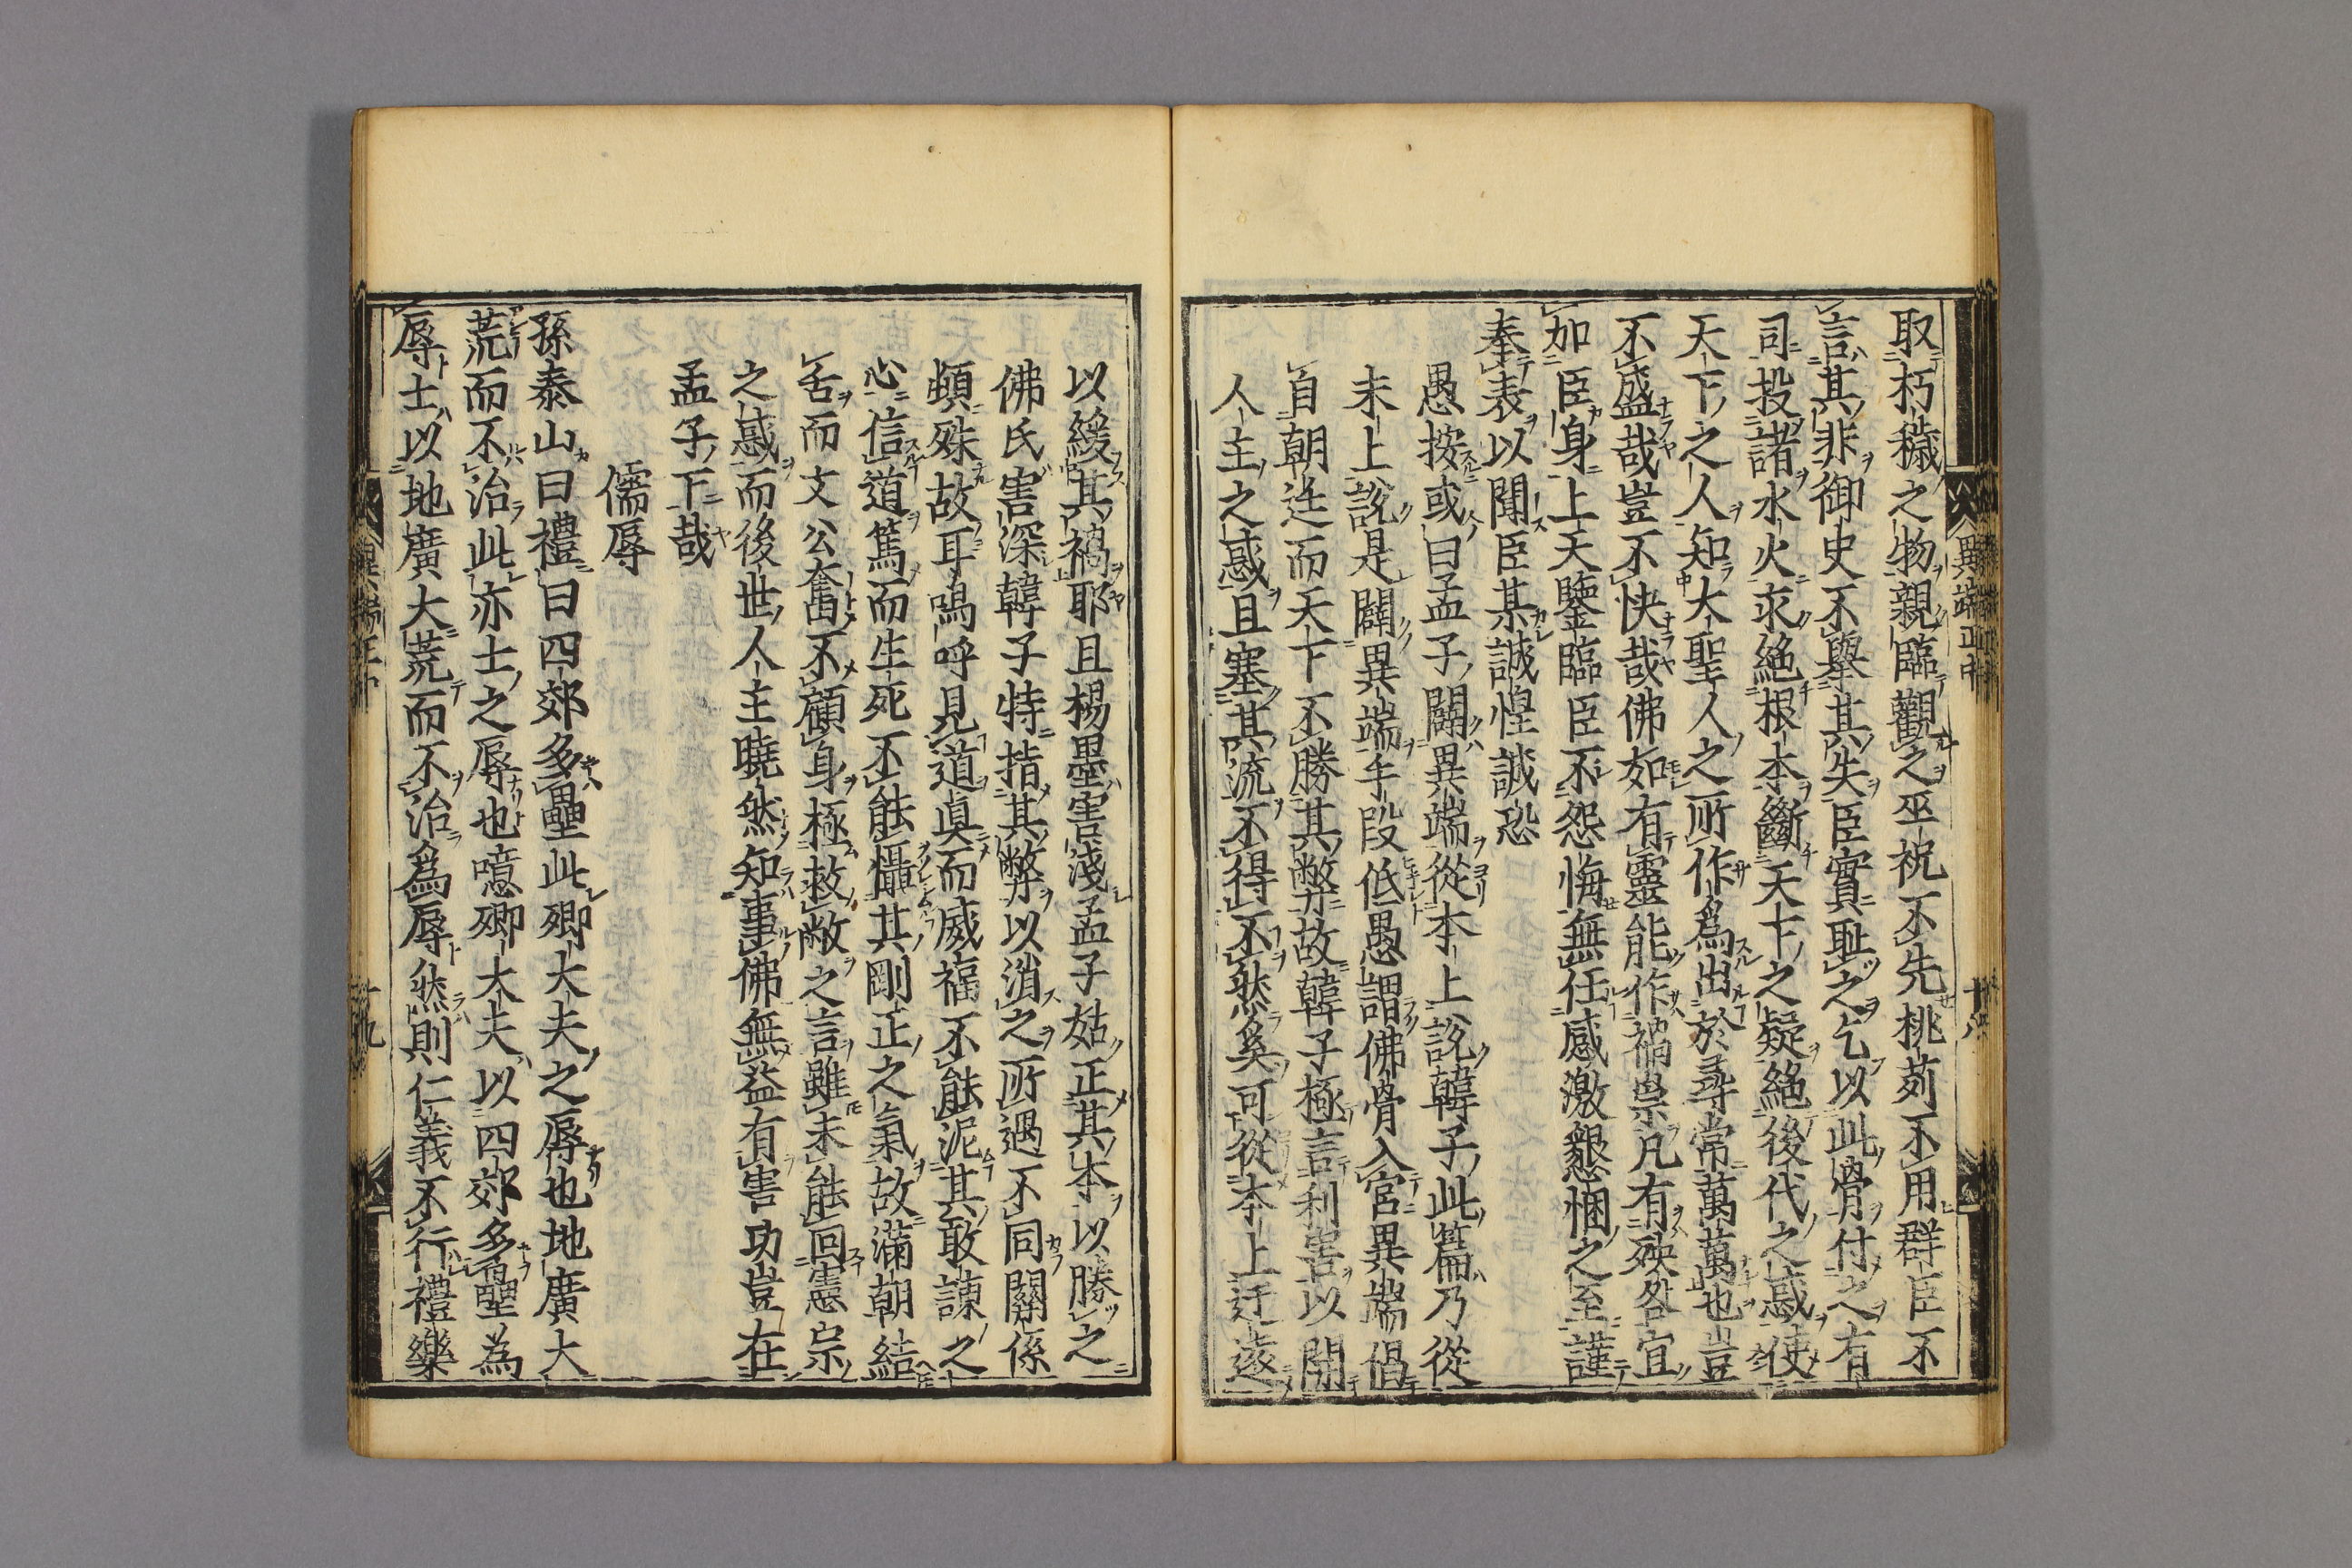 取朽穢之物親臨觀之巫祝不先桃茢不用群臣不
言其非御史不舉其失臣實恥之乞以此骨付之有
司投諸水火永絕根本斷天下之疑絕後代之惑使
天下之人知大聖人之所作爲出於尋常萬萬也豈
不盛哉豈不快哉佛如有靈能作禍祟凡有殃咎宜
加臣身上天鑒臨臣不怨悔無任感激懇悃之至謹
奉表以聞臣某誠惶誠恐
愚按或曰孟子闢異端從本上說韓子此篇乃從
末上說是闢異端手段低愚謂佛骨入宮異端倡
自朝廷而天下不勝其弊故韓子極言利害以開
人主之惑且塞其流不得不然奚可從本上迂遠
以緩其禍耶且楊墨害淺孟子姑正其本以勝之
佛氏害深韓子特指其弊以消之所遇不同關係
頓殊故耳嗚呼見道眞而威福不能泥其敢諫之
心信道篤而生死不能攝其剛正之氣故滿朝結
舌而文公奮不顧身極救敝之言雖未能回憲宗
之惑而後世人主曉然知事佛無益有害功豈在
孟子下哉
儒辱
孫泰山曰禮曰四郊多壘此卿大夫之辱也地廣大
荒而不治此亦士之辱也噫卿大夫以四郊多壘為
辱士以地廣大荒而不治爲辱然則仁義不行禮樂
異端正中
十八
異端正中
十九